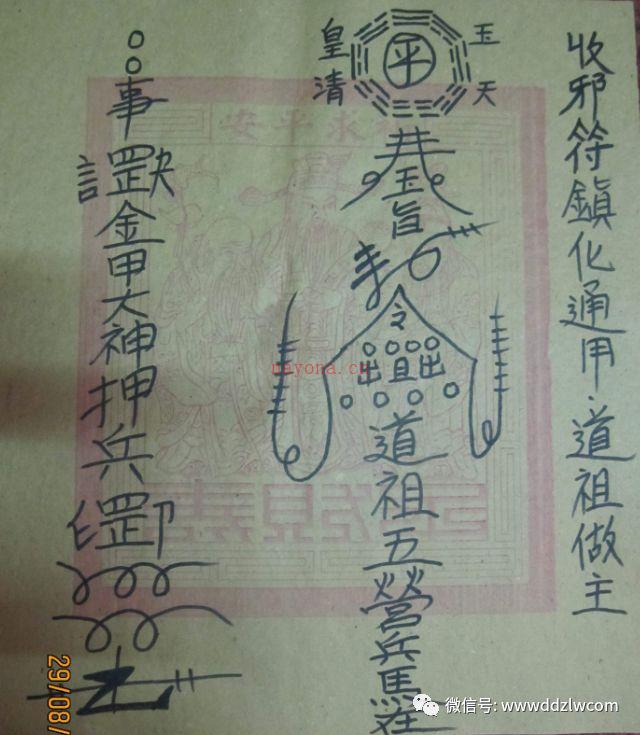 收邪符鎮化通用道祖做主
玉皇
天清
平
奉玉旨
令
道祖五營兵馬在
事
金甲大神押兵
求平安
29/08/
nayona.cn
微信号: wwwddzlwcom